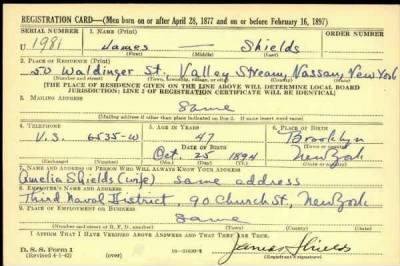 REGISTRATION CARD—(Men born on or after April 28, 1877 and on or before February 16, 1897)
SERIAL NUMBER 1. NAME (Print) ORDER NUMBER
U 1981 James — Shields
(First) (Middle) (Last)
2. PLACE OF RESIDENCE (Print)
50 Waldinger St. Valley Stream, Nassau, New York
(Number and street) (Town, township, village, or city) (County) (State)
[THE PLACE OF RESIDENCE GIVEN ON THE LINE ABOVE WILL DETERMINE LOCAL BOARD
JURISDICTION; LINE 2 OF REGISTRATION CERTIFICATE WILL BE IDENTICAL]
3. MAILING ADDRESS
Same
[Mailing address if other than place indicated on line 2. If same insert word same]
4. TELEPHONE 5. AGE IN YEARS 6. PLACE OF BIRTH
V.S. 6535-W 47 Brooklyn
DATE OF BIRTH (Town or county)
Oct. 25 1894 New York
(Exchange) (Number) (Mo.) (Day) (Yr.) (State or country)
7. NAME AND ADDRESS OF PERSON WHO WILL ALWAYS KNOW YOUR ADDRESS
Amelia Shields (wife) same address
8. EMPLOYER'S NAME AND ADDRESS
Third Naval District, 90 Church St, New York
9. PLACE OF EMPLOYMENT OR BUSINESS
Same
(Number and street or R. F. D. number) (Town) (County) (State)
I AFFIRM THAT I HAVE VERIFIED ABOVE ANSWERS AND THAT THEY ARE TRUE.
D. S. S. Form 1
(Revised 4-1-42) James Shields